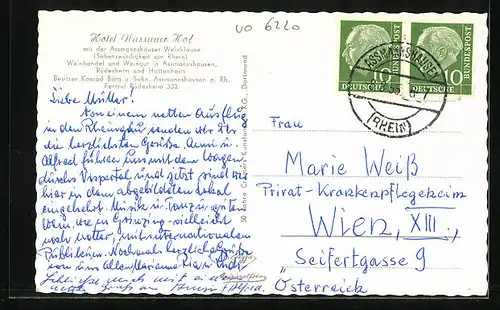 UO 6220
Hotel Nassauer Hof
mit der Assmannshäuser Weinklause
(Sehenswürdigkeit am Rhein)
Weinhandel und Weingut in Assmannshausen,
Rüdesheim und Hattenheim
Besitzer Konrad Berg u. Sohn, Assmannshausen a. Rh.
Fernruf Rüdesheim 332
Liebe Mutter!
Von einem netten Ausflug
in den Rheingau senden wir Dir
die herzlichsten Grüße. Anni u.
Alfred führen uns mit dem Wagen
durchs Wispertal und jetzt sind wir
hier in dem abgebildeten Lokal
eingekehrt. Musik u. Tanz u. guten
Wein, wie in Grinzing vielleicht
noch netter, mit internationalem
Publikum. Nochmals herzliche Grüße
von uns Allen, Marianne
50 Jahre Cramers Kunstanstalt KG., Dortmund
10 DEUTSCHE BUNDESPOST
DEUTSCHE BUNDESPOST 10
ASSMANNSHAUSEN
(RHEIN)
Frau
Marie Weiß
Privat-Krankenpflegeheim
Wien, XIII.,
Seifertgasse 9
Österreich